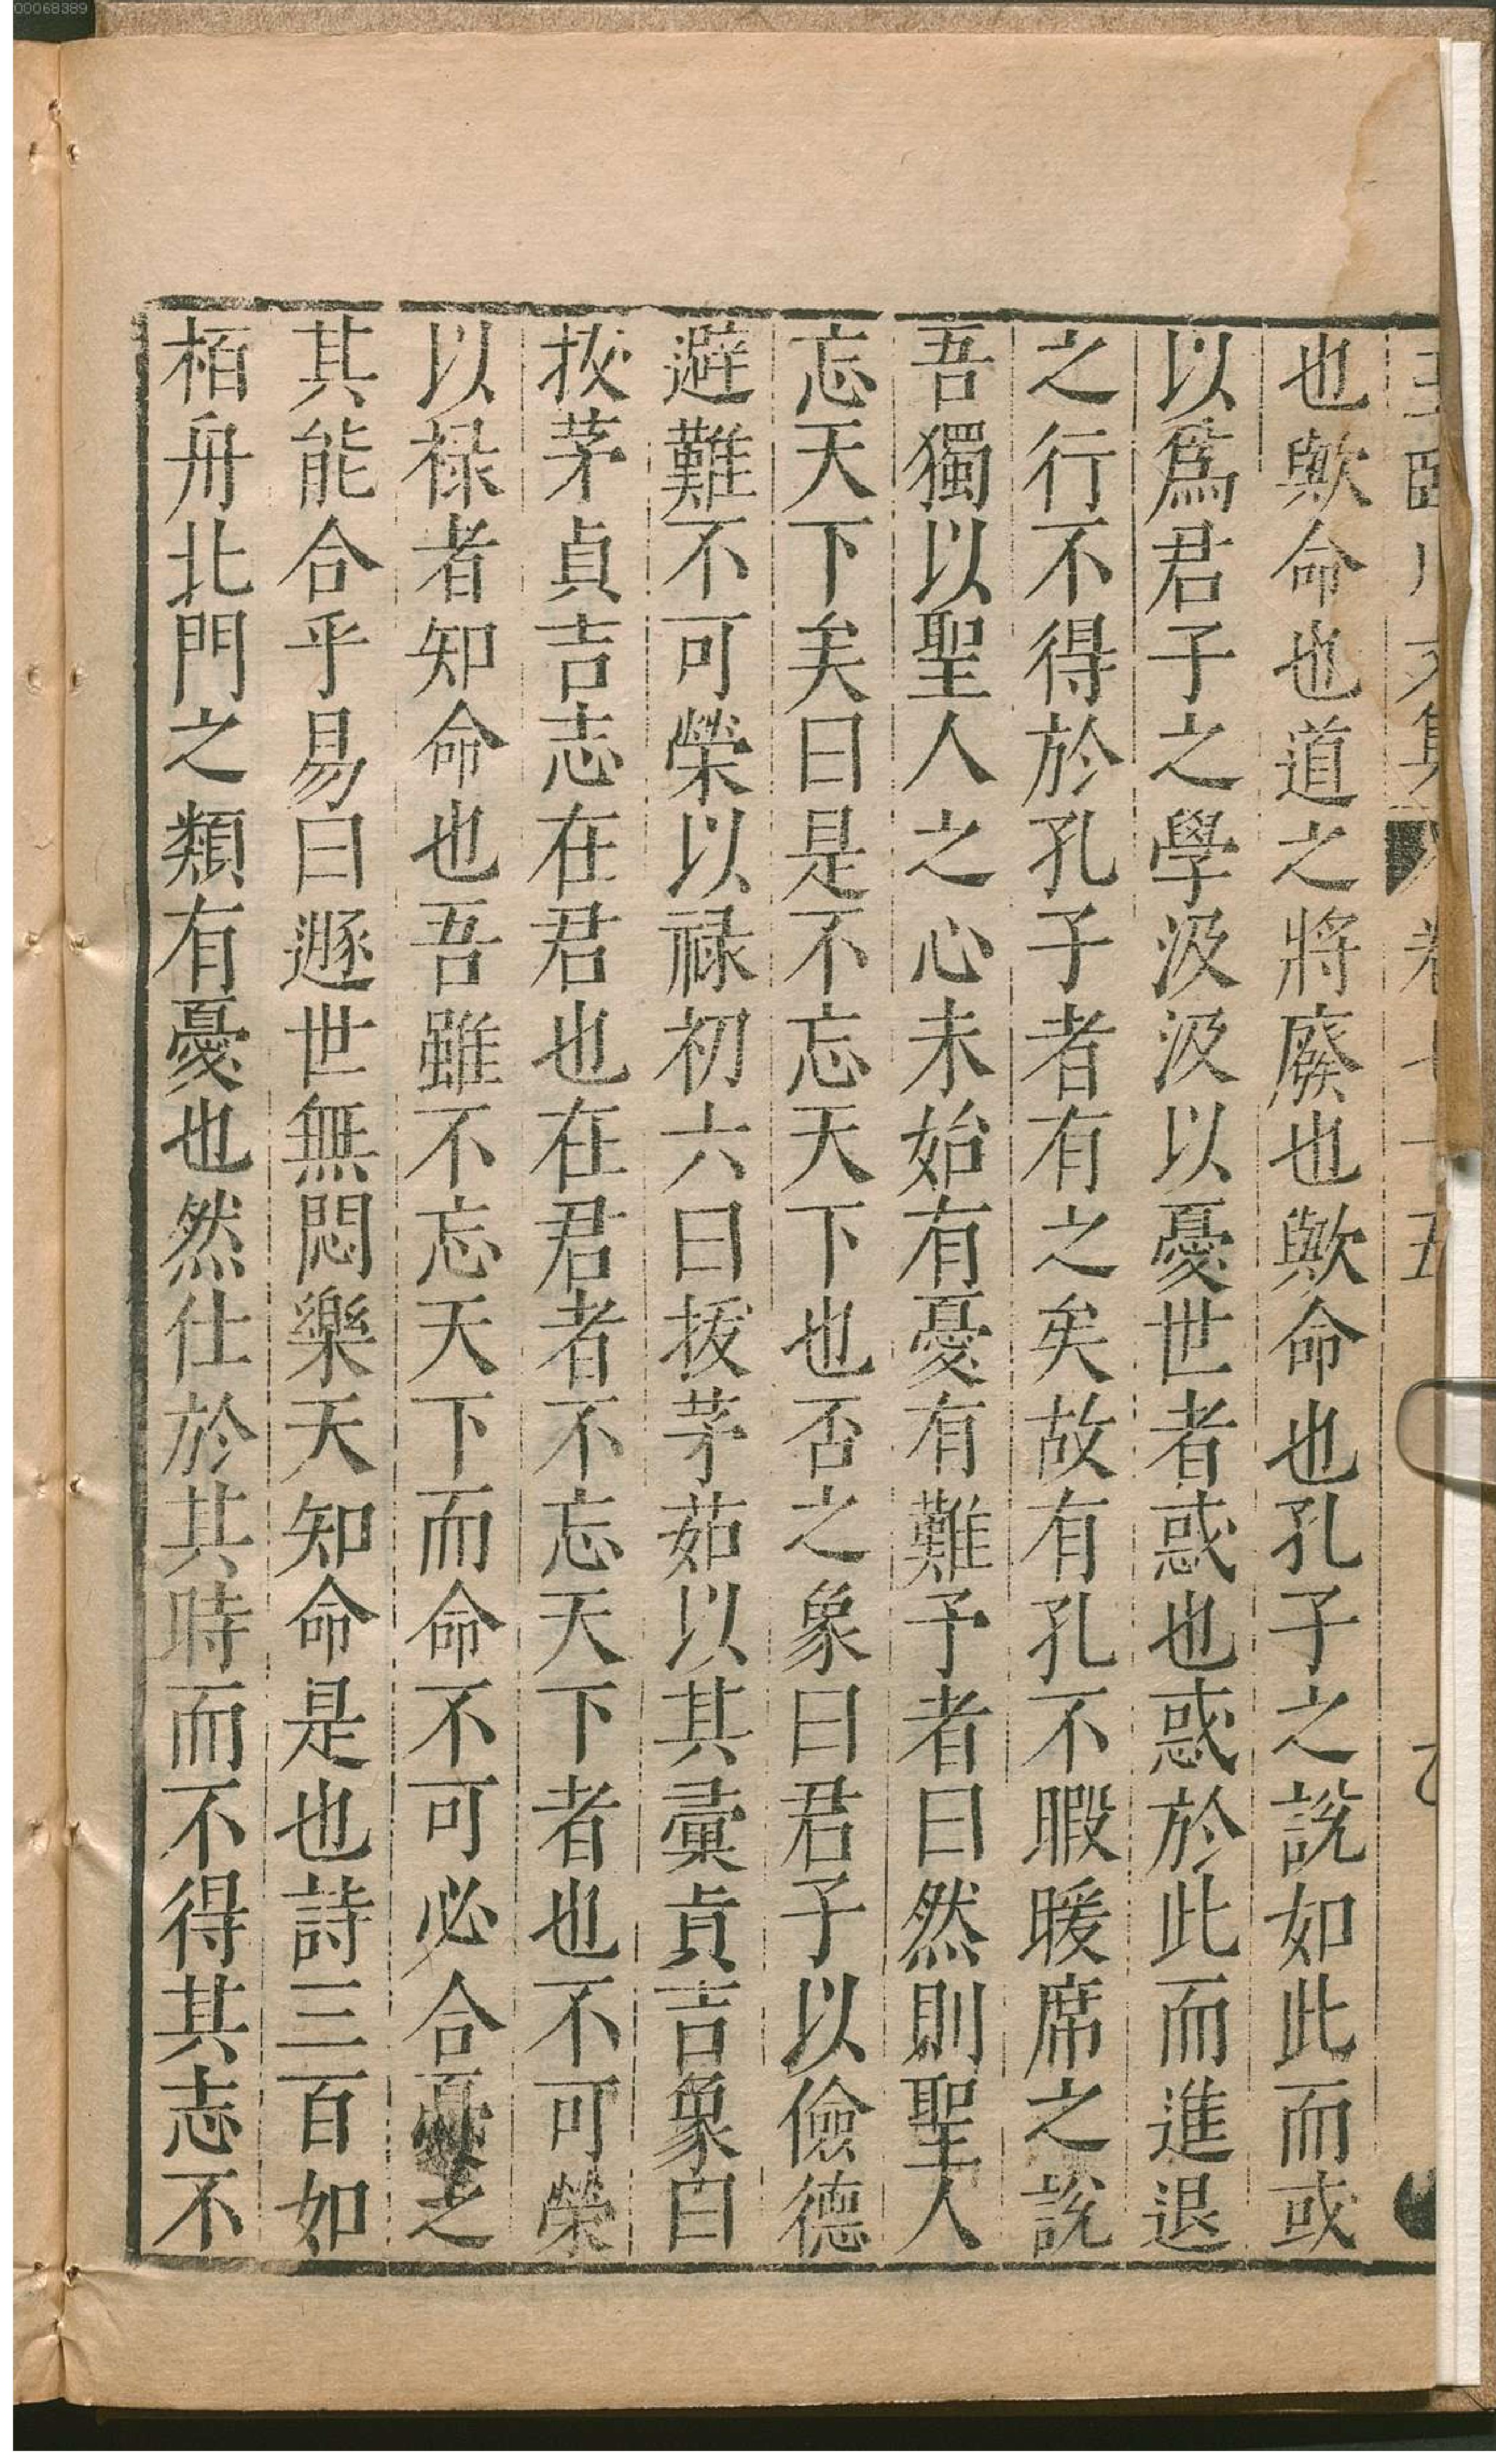 00068389
文集 卷七十五
也歟命也道之將廢也歟命也孔子之説如此而或
以爲君子之學汲汲以憂世者惑也惑於此而進退
之行不得於孔子者有之矣故有孔不暇暖席之説
吾獨以聖人之心未始有憂有難予者曰然則聖人
忘天下矣曰是不忘天下也否之象曰君子以儉德
避難不可榮以禄初六曰拔茅茹以其彙貞吉象曰
拔茅貞吉志在君也在君者不忘天下者也不可榮
以禄者知命也吾雖不忘天下而命不可必合憂之
其能合乎易曰遯世無悶樂天知命是也詩三百如
栢舟北門之類有憂也然仕於其時而不得其志不